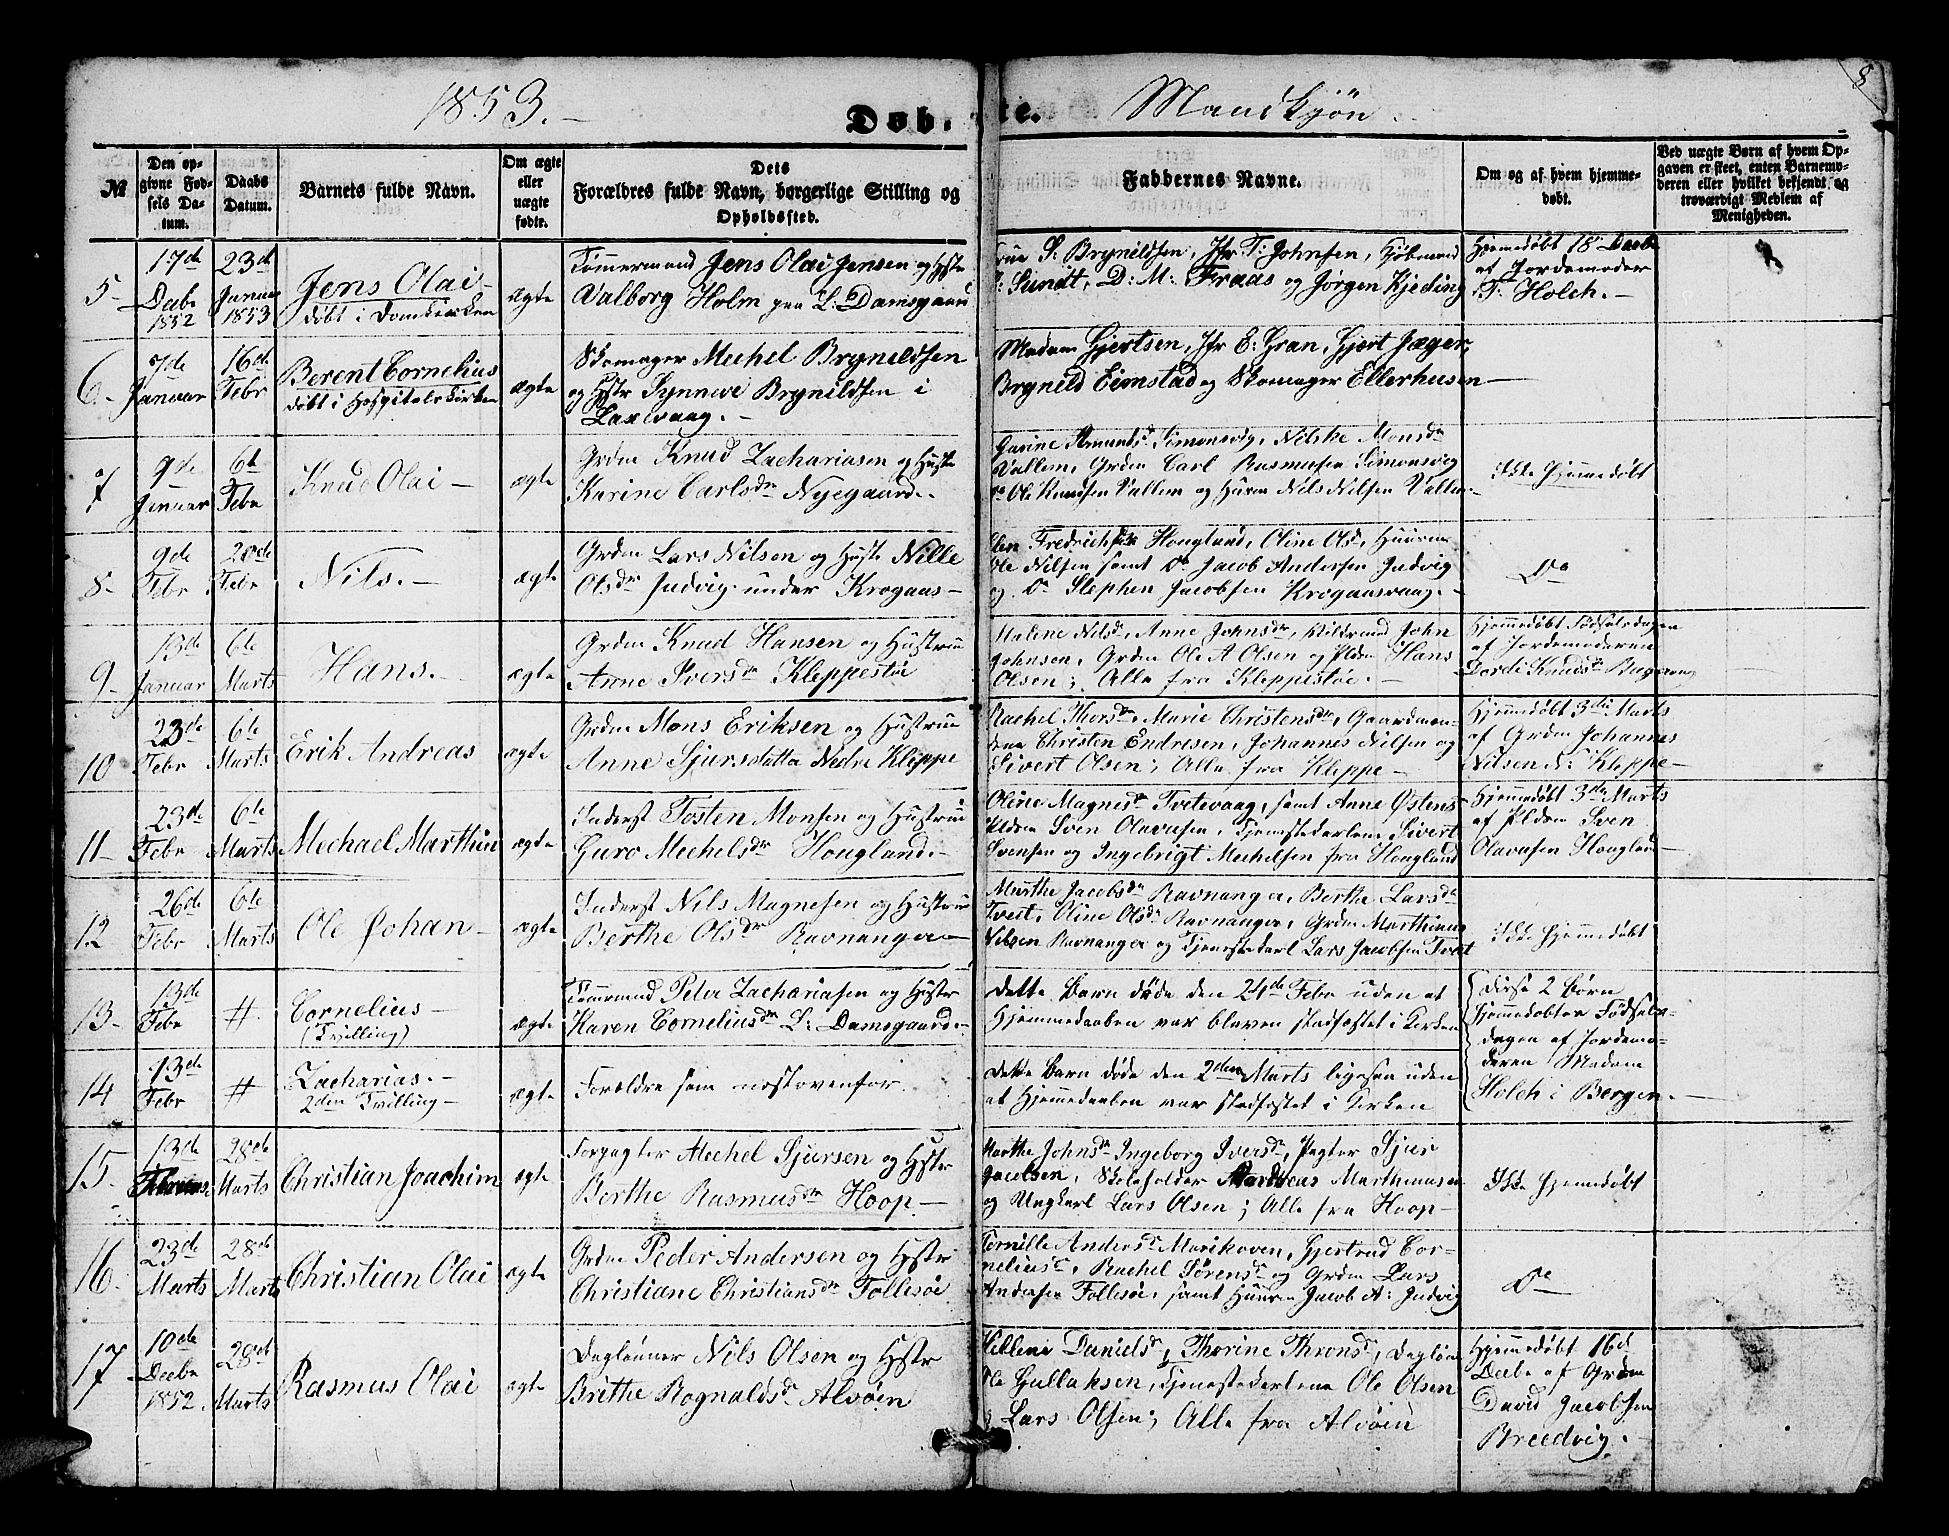 1853.
Døbte.
Mandkjøn.
8
№
Den opgivne Fødsels Datum.
Daabs Datum.
Barnets fulde Navn.
Om ægte eller uægte fødte.
Dets
Forældres fulde Navn, borgerlige Stilling og
Opholdssted.
Faddernes Navne.
Om og af hvem hjemmedøbt.
Ved uægte Børn af hvem Opgaven er skeet, enten Barnemoderen eller hvilket bekjendt og troværdigt Medlem af Menigheden.
5-
17de Decbr 1852
23de Januar 1853
Jens Olai-
døbt i Domkirken
ægte
Tømmermand Jens Olai Jensen og Hstr
Valborg Holm paa L: Damsgaard
S. Brynildsen, Jfr T: Johnsen, Kjøbmand
Sundt, D: M: Fraas og Jørgen Kjeding
Hjemmedøbt 18 Decbr
af Jordemoder
T: Holck.-
6.-
7de Januar
16de Febr
Berent Cornelius
døbt i Hospitalskirken
ægte
Skomager Mechel Brynildsen
og Hstr Synneve Brynildsen i
Laxevaag.-
Madam Gjertsen, Jfr E: Gran, Gjert Jæger,
Brynild Eimstad og Skomager Ellerhusen
7
9de Januar
6te Febr
Knud Olai-
ægte
Grdm Knud Zachariasen og Hustr
Karine Carlsdr Nygaard.-
Gurine Amundsdr Simonsvig, Nilske Monsdr
Vallem, Grdm Carl Rasmusen Simonsvig
Do Ole Knudsen Vallem og Huusm Nils Nilsen Vallem-
Ikke Hjemmedøbt
8-
9de Febr
20de Febr
Nils.-
ægte
Grdm Lars Nilsen og Hustr Nille
Olsdr Judvig under Krogaas-
Fredrichsdr Hougland, Oline Olsdr, Huusm
Ole Nilsen samt Do Jacob Andersen Judvig
og Do Stephen Jacobsen Krogaasvaag.-
Do
9-
13de Januar
6te Marts
Hans.-
ægte
Grdm Knud Hansen og Hustrue
Anne Iversdr Kleppestøe
Malene Nilsdr, Anne Johnsdr, John
Johnsen, Grdm Ole A Olsen og Pldm Hans
Olsen; Alle fra Kleppestøe.-
Hjemmedøbt Fødselsdagen
af Jordemoderen
Dordi Knudsdr
10
23de Febr
6te Marts
Erik Andreas
ægte
Grdm Mons Eriksen og Hustrue
Anne Sjursdatter Nedre Kleppe
Rachel Thorsdr, Marie Christensdr, Gaardmændene Christen Endresen, Johannes Nilsen og
Sivert Olsen; Alle fra Kleppe-
Hjemmedøbt 3die Marts
af Grdm Johannes
Nilsen N: Kleppe-
11-
23de Febr
6te Marts
Mechael Marthin
ægte
Inderst Tosten Monsen og Hustrue
Guro Mechelsdr Hougland.-
Oline Magnesdr Tvetevaag, samt Anne Østens
Pldm Sven Olavesen, Tjenestekarlene Sivert
Svensen og Ingebrigt Mechelsen fra Hougland
Hjemmedøbt 3die Marts
af Pldm Sven
Olavesen Hougland-
12
26de Febr
6te Marts
Ole Johan-
ægte
Inderst Nils Magnesen og Hustrue
Berthe Olsdr Ravnanger-
Marthe Jacobsdr Ravnanger, Berthe Larsdr
Tveit, Oline Olsdr Ravnanger, Grdm Marthinus
Nilsen Ravnanger og Tjenestekarl Lars Jacobsen Tveit
Ikke Hjemmedøbt
13-
13de Febr
#
Cornelius-
(Tvilling)
ægte
Tømmermand Peter Zachariasen og Hustr
Karen Corneliusdr L: Damsgaard.-
Dette Barn døde den 24de Febr uden at
Hjemmedaaben var bleven stadfæstet i Kirken
Disse 2 Børn
Hjemmedøbtes Fødselsdagen af Jordemoderen Madam
Holck i Bergen.-
14
13de Febr
#
Zacharias.-
2den Tvilling-
ægte
Forældre som næstovenfor
Dette Barn døde den 2den Marts ligesaa uden
at Hjemmedaaben var stadfæstet i Kirken
15-
13de Februar
28de Marts
Christian Joachim
ægte
Forpagter Mechel Sjursen og Hstr
Berthe Rasmusdr Hoop-
Marthe Johnsdr Ingeborg Iversdr, Pagter Sjur
Jacobsen, Skoleholder Andreas Marthinusen
og Ungkarl Lars Olsen; Alle fra Hoop-
Ikke Hjemmedøbt
16-
23de Marts
28de Marts
Christian Olai
ægte
Grdm Peder Andersen og Hstr
Christiane Christiansdr Follesøe
Pernille Andersdr Marikoven, Gjertrud Corneliusdr, Rachel Sørensdr og Grdm Lars
Andersen Follesøe, samt Huusm Jacob A: Judvig
Do
17
10de Decbr 1852.
28de Marts
Rasmus Olai
ægte
Dagleiner Nils Olsen og Hstr
Brithe Rognaldsdr Alvøen
Hellene Danielsdr, Thorine Thronsdr,
Ole Gullaksen, Tjenestekarlene Ole Olsen
og Lars Olsen; Alle fra Alvøen
Hjemmedøbt 16de
Decbr af Grdm
David Jacobsen
Breedvig.-